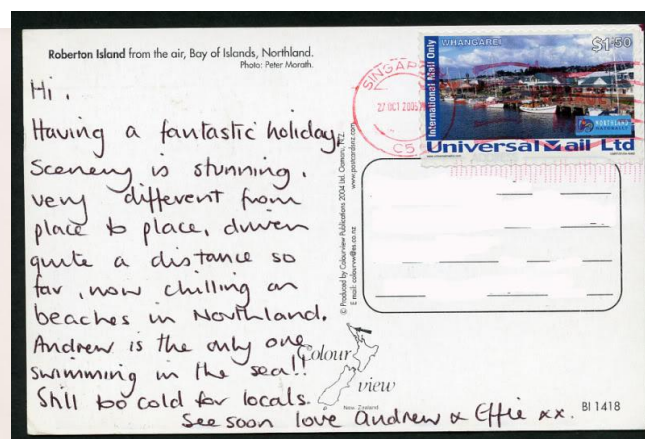 Roberton Island from the air, Bay of Islands, Northland.
Photo: Peter Morath.
Hi.
Having a fantastic holiday.
Scenery is stunning,
very different from
place to place, driven
quite a distance so
far, now chilling on
beaches in Northland.
Andrew is the only one
swimming in the sea!!
Still too cold for locals.
See soon love Andrew & Effie xx.
© Produced by Colourview Publications 2004 Ltd. Oamaru, N.Z.
E mail: colourvw@es.co.nz
www.postcardsnz.com
SINGAP
27 OCT 2005
C5
International Mail Only
WHANGAREI
$1.50
NORTHLAND
NATURALLY
Universal Mail Ltd
Colour
view
New Zealand
BI 1418